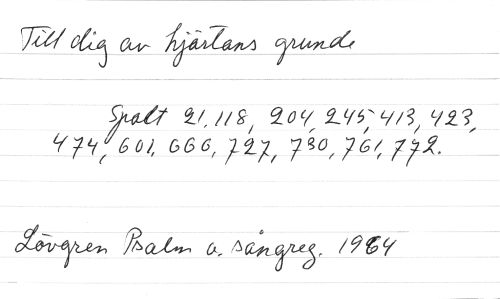 Till dig av hjärtans grunde
Spalt 21, 118, 204, 245, 413, 423,
474, 601, 666, 727, 730, 761, 772.
Lövgren Psalm o. sångreg. 1964